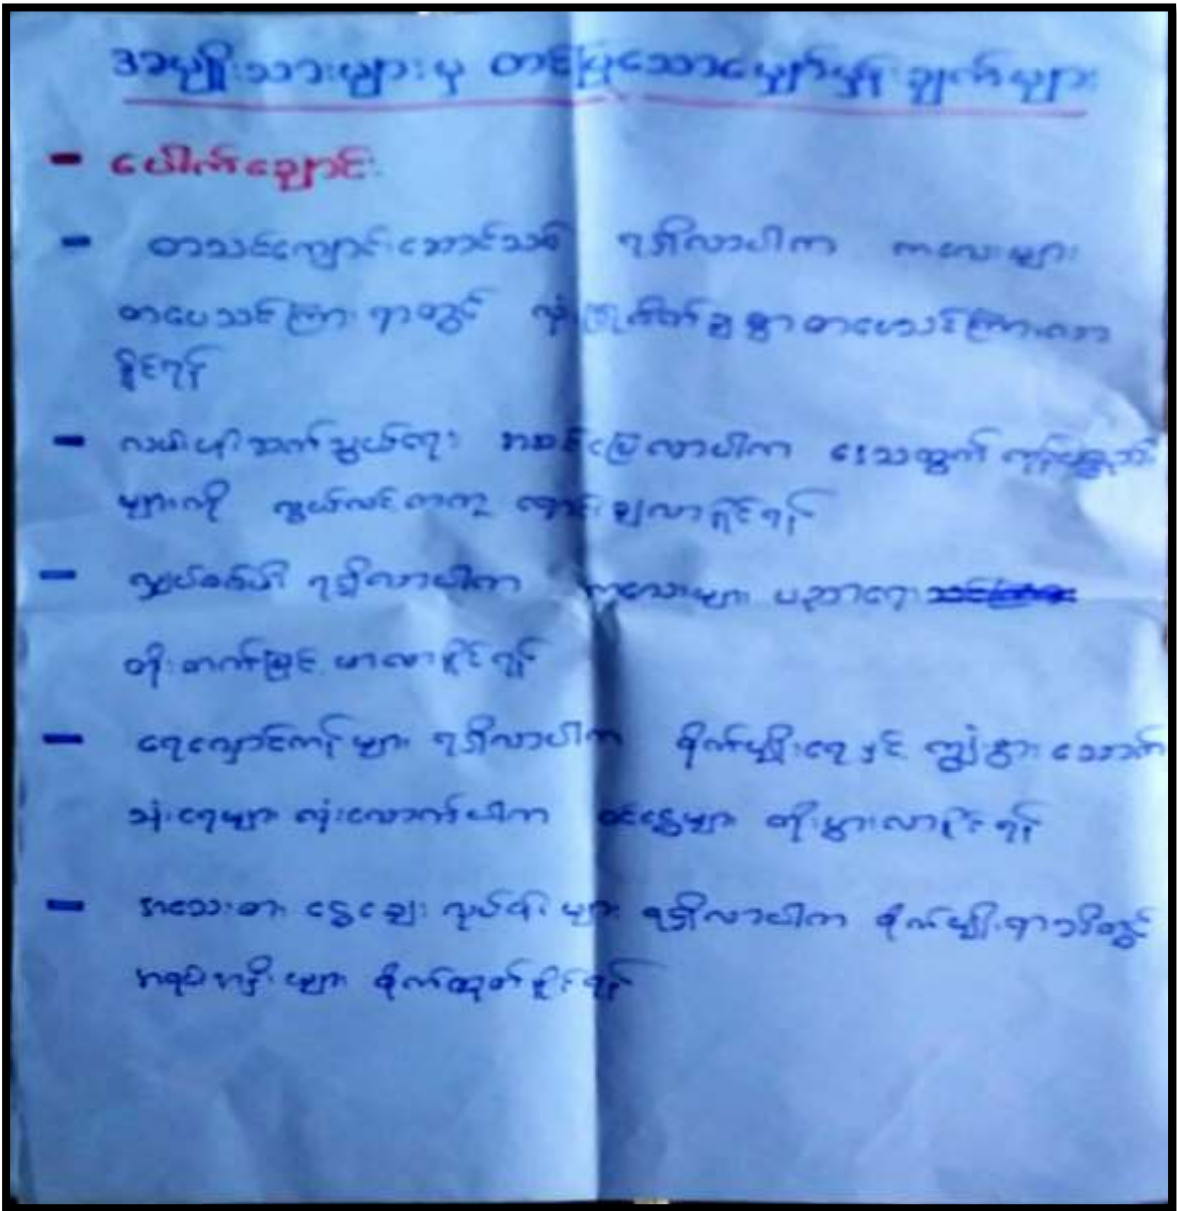 အမျိုးသားများမှ တင်ပြသောမျှော်မှန်းချက်များ
- ပေါက်ချောင်း
- စာသင်ကျောင်းဆောင်သစ် ရရှိလာပါက ကလေးများ
စာပေသင်ကြားရာတွင် လုံခြုံစိတ်ချစွာ စာပေသင်ကြားလာ
နိုင်ရန်
- လမ်းပန်းဆက်သွယ်ရေး အဆင်ပြေလာပါက ဒေသထွက်ကုန်ပစ္စည်း
များကို လွယ်လင့်တကူ ရောင်းချလာနိုင်ရန်
- လျှပ်စစ်မီး ရရှိလာပါက ကလေးများ ပညာရေး
တိုးတက်မြင့်မားလာနိုင်ရန်
- ရေလှောင်ကန်များ ရရှိလာပါက စိုက်ပျိုးရေနှင့် ကျွဲ၊ နွား သောက်
သုံးရေများ လုံလောက်ပါက ဝင်ငွေများ တိုးပွားလာနိုင်ရန်
- အသေးစား ငွေချေး လုပ်ငန်းများ ရရှိလာပါက စိုက်ပျိုးရာသီတွင်
စိုက်ထုတ်နိုင်ရန်